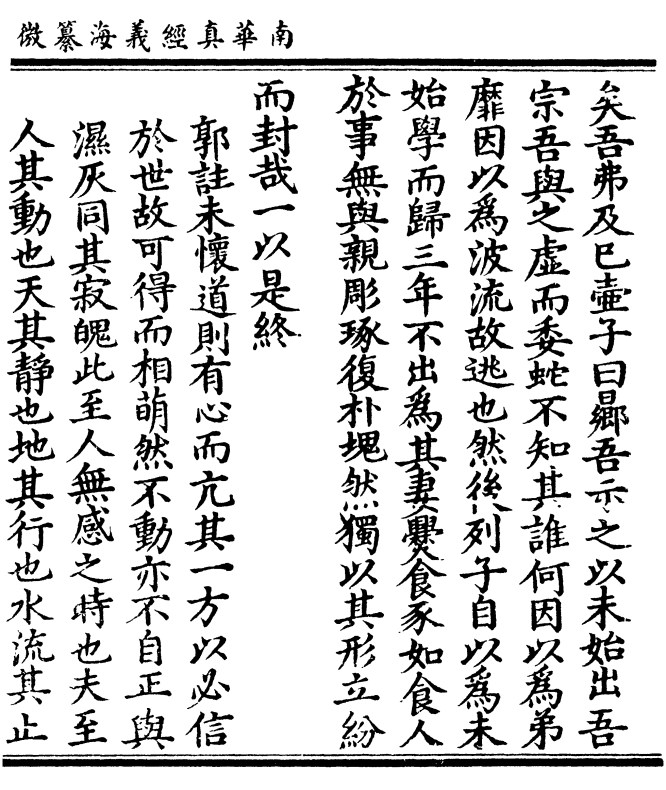 南華真經義海纂微
矣吾弗及已壺子曰鄉吾示之以未始出吾
宗吾與之虛而委蛇不知其誰何因以爲弟
靡因以爲波流故逃也然後列子自以爲未
始學而歸三年不出爲其妻爨食豕如食人
於事無與親彫琢復朴塊然獨以其形立紛
而封哉一以是終
郭註未懷道則有心而亢其一方以必信
於世故可得而相萌然不動亦不自正與
濕灰同其寂魄此至人無感之時也夫至
人其動也天其靜也地其行也水流其止